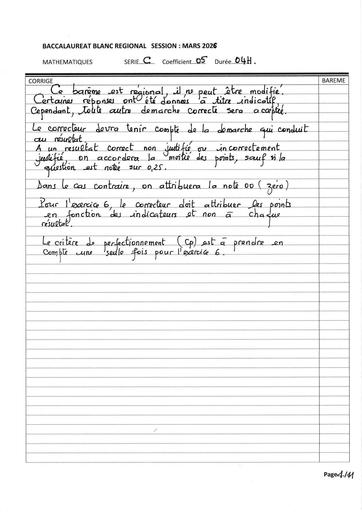 BACCALAUREAT BLANC REGIONAL SESSION : MARS 2026
MATHEMATIQUES SERIE C Coefficient 05 Durée 04H.
CORRIGE BAREME
Ce barème est régional, il ne peut être modifié.
Certaines réponses ont été données à titre indicatif.
Cependant, toute autre demarche correcte sera acceptée.
Le correcteur devra tenir compte de la demarche qui conduit
au résultat.
A un resultat correct non justifié ou incorrectement
justifié, on accordera la moitié des points, sauf si la
question est notée sur 0,25.
Dans le cas contraire, on attribuera la note 00 (zéro)
Pour l'exercice 6, le correcteur doit attribuer les points
en fonction des indicateurs et non à chaque
résultat.
Le critère de perfectionnement (Cp) est à prendre en
compte une seule fois pour l'exercice 6.
Page 1/11